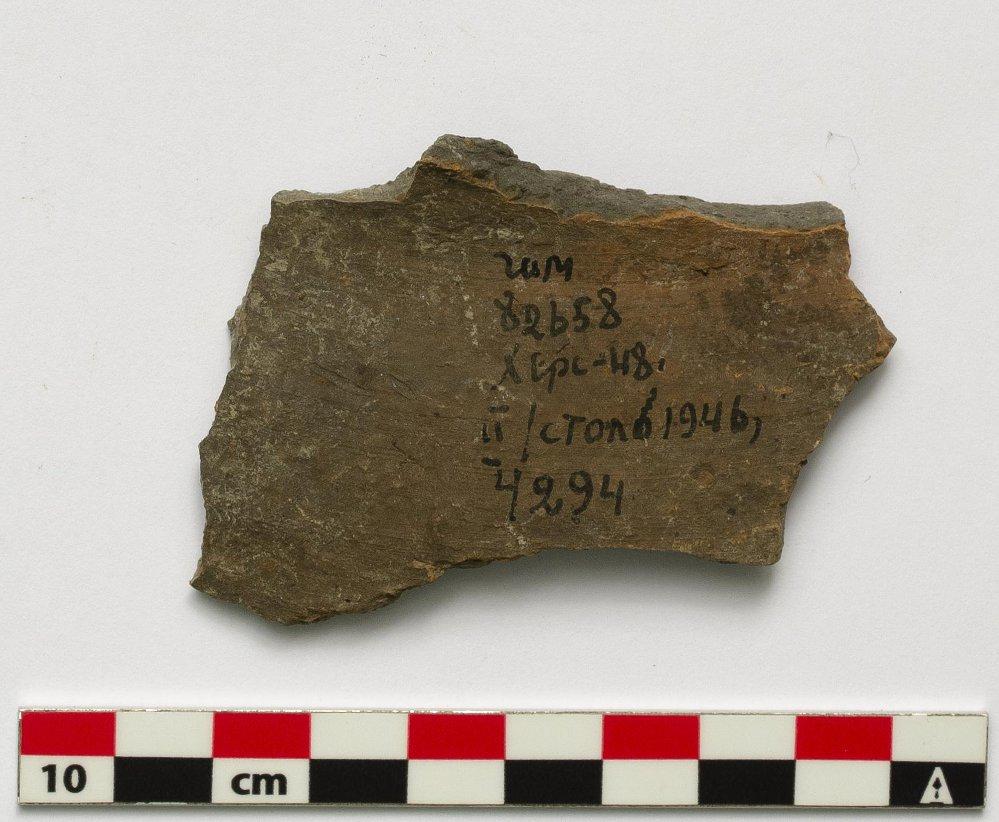 гим
82658
Херс-48.
II/столб 1946,
4294
10 cm